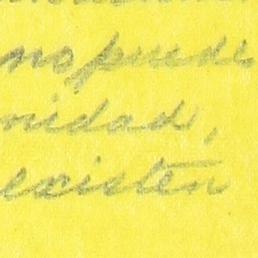 no puede
nidad,
existen